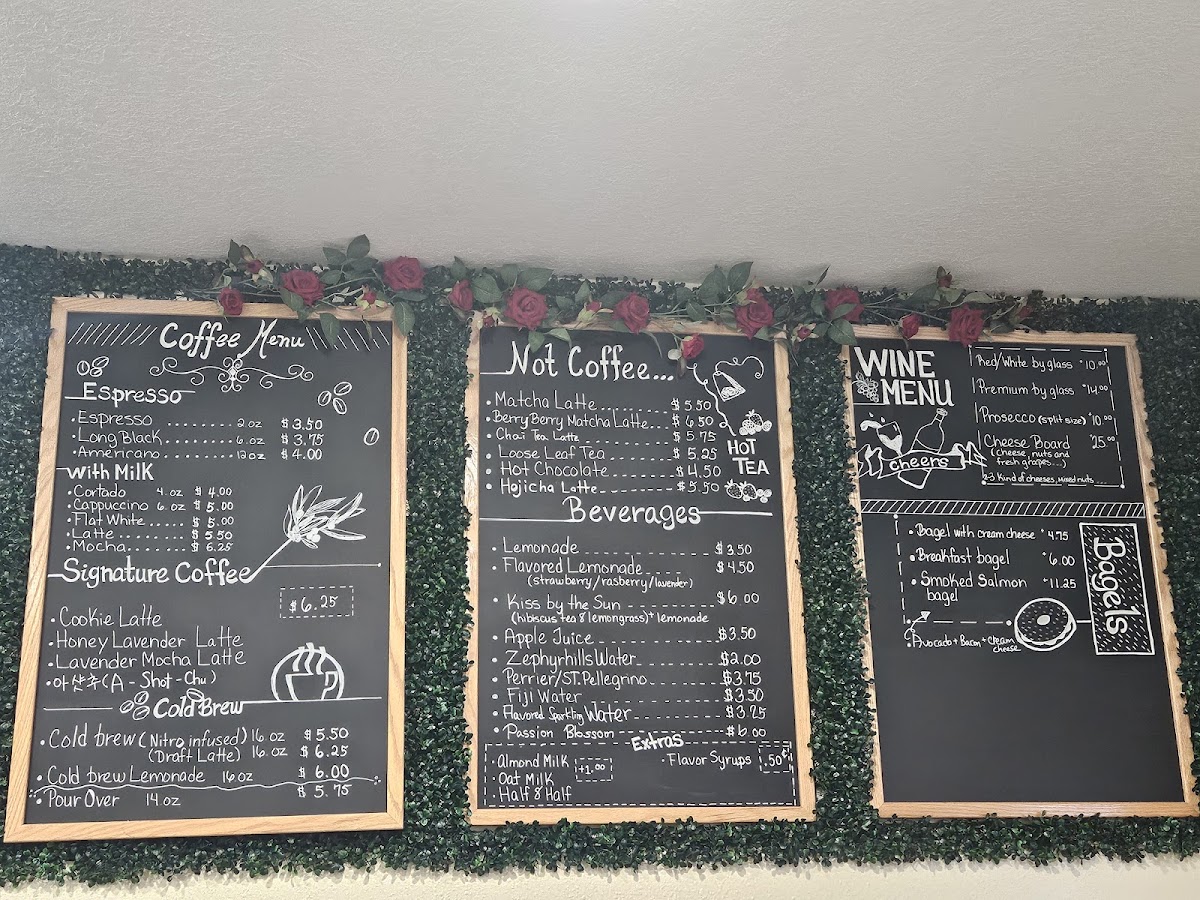 Coffee Menu
Espresso
• Espresso ........ 2 oz $ 3.50
• Long Black ...... 6 oz $ 3.75
• Americano ....... 12 oz $ 4.00
With Milk
• Cortado 4 oz $ 4.00
• Cappuccino 6 oz $ 5.00
• Flat White ..... $ 5.00
• Latte ........ $ 5.50
• Mocha ....... $ 6.25
Signature Coffee
$ 6.25
• Cookie Latte
• Honey Lavender Latte
• Lavender Mocha Latte
• 아샷추 (A - Shot - Chu)
Cold Brew
• Cold brew (Nitro infused) 16 oz $ 5.50
(Draft Latte) 16 oz $ 6.25
• Cold brew Lemonade 16 oz $ 6.00
• Pour Over 14 oz $ 5.75
Not Coffee...
• Matcha Latte $ 5.50
• Berry Berry Matcha Latte $ 6.50
• Chai Tea Latte $ 5.75
• Loose Leaf Tea $ 5.25
• Hot Chocolate $ 4.50
• Hojicha Latte $ 5.50
HOT
TEA
Beverages
• Lemonade $ 3.50
• Flavored Lemonade $ 4.50
(strawberry/rasberry/lavender)
• Kiss by the Sun $ 6.00
(hibiscus tea & lemongrass) + lemonade
• Apple Juice $3.50
• Zephyrhills Water $2.00
• Perrier/ST. Pellegrino $3.75
• Fiji Water $3.50
• Flavored Sparkling Water $3.75
• Passion Blossom $6.00
Extras
• Almond Milk +1.00
• Oat Milk
• Half & Half
• Flavor Syrups .50¢
WINE
MENU
cheers
Red/White by glass $10.00
Premium by glass $14.00
Prosecco (split size) $10.00
Cheese Board $25.00
(cheese, nuts and
fresh grapes...)
2-3 Kind of cheeses, mixed nuts ...
Bagels
• Bagel with cream cheese $ 4.75
• Breakfast bagel $ 6.00
• Smoked Salmon $ 11.25
bagel
• Avocado + Bacon + cream
cheese